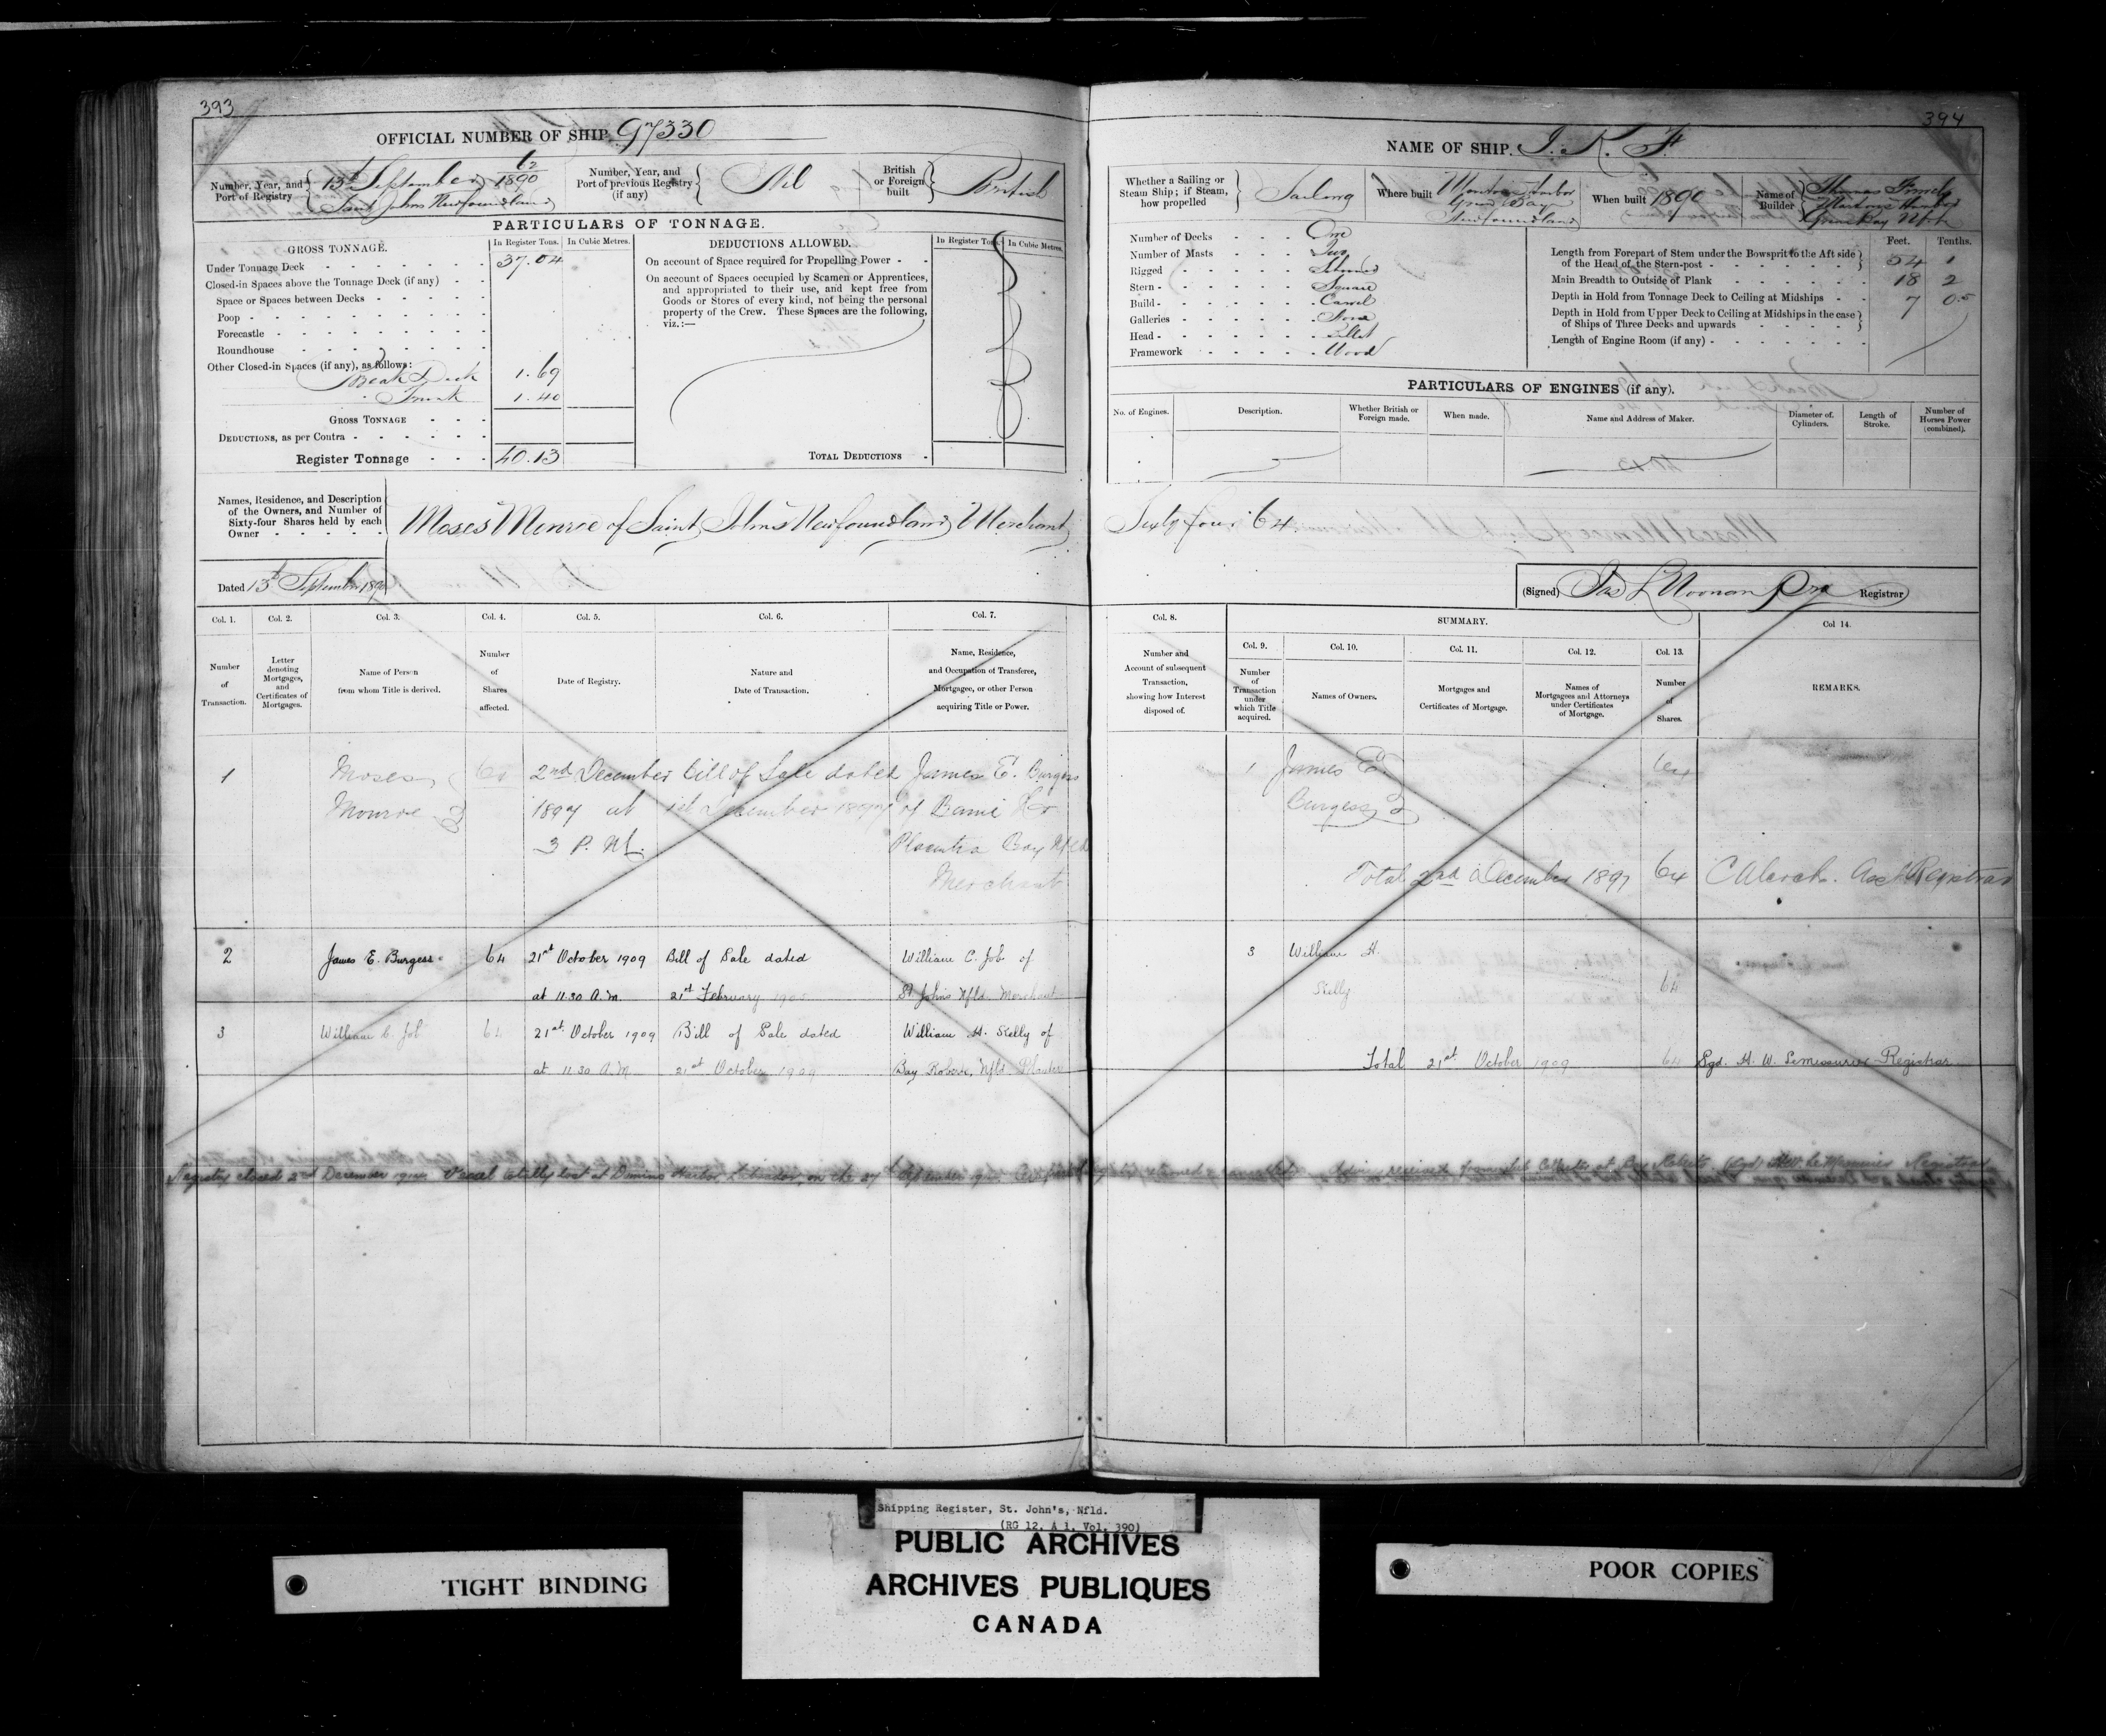 393
OFFICIAL NUMBER OF SHIP 97330
Number, Year, and Port of Registry
13th September 62/1890
Saint Johns Newfoundland
Number, Year, and Port of previous Registry (if any)
Nil
British or Foreign built
British
PARTICULARS OF TONNAGE.
GROSS TONNAGE.
In Register Tons.
In Cubic Metres.
Under Tonnage Deck 37.04
Closed-in Spaces above the Tonnage Deck (if any)
Space or Spaces between Decks
Poop
Forecastle
Roundhouse
Other Closed-in Spaces (if any), as follows:
Break Deck 1.69
Trunk 1.40
GROSS TONNAGE
DEDUCTIONS, as per Contra
Register Tonnage 40.13
DEDUCTIONS ALLOWED.
In Register Tons.
In Cubic Metres.
On account of Space required for Propelling Power
On account of Spaces occupied by Seamen or Apprentices,
and appropriated to their use, and kept free from
Goods or Stores of every kind, not being the personal
property of the Crew. These Spaces are the following,
viz.:—
TOTAL DEDUCTIONS
Names, Residence, and Description
of the Owners, and Number of
Sixty-four Shares held by each
Owner
Moses Monroe of Saint Johns Newfoundland Merchant
Dated 13th September 1890
Col. 1. Number of Transaction.
Col. 2. Letter denoting Mortgages, and Certificates of Mortgages.
Col. 3. Name of Person from whom Title is derived.
Col. 4. Number of Shares affected.
Col. 5. Date of Registry.
Col. 6. Nature and Date of Transaction.
Col. 7. Name, Residence, and Occupation of Transferee, Mortgagee, or other Person acquiring Title or Power.
1 Moses 64 2nd December Bill of Sale dated James E. Burgess
Monroe 1897 at 1st December 1897 of
3 P.M. Placentia Bay Nfld
Merchant
2 James E. Burgess 64 21st October 1909 Bill of Sale dated William C. Job of
at 11.30 A.M. 21st February St Johns Nfld. Merchant
3 William C. Job 64 21st October 1909 Bill of Sale dated William H. Kelly of
at 11.30 A.M. 21st October 1909 Bay Roberts, Nfld. Planter
Registry closed 2nd December Vessel totally lost at Domino Harbor, Labrador, on the 27th September
394
NAME OF SHIP. I. K. F.
Whether a Sailing or Steam Ship; if Steam, how propelled
Sailing
Where built
Harbor
Green Bay
Newfoundland
When built 1890
Name of Builder
Thomas
Harbor
Green Bay Nfld
Number of Decks One
Number of Masts Two
Rigged Schooner
Stern Square
Build Carvel
Galleries None
Head Billet
Framework Wood
Feet. Tenths.
Length from Forepart of Stem under the Bowsprit to the Aft side
of the Head of the Stern-post 54 1
Main Breadth to Outside of Plank 18 2
Depth in Hold from Tonnage Deck to Ceiling at Midships 7 05
Depth in Hold from Upper Deck to Ceiling at Midships in the case
of Ships of Three Decks and upwards
Length of Engine Room (if any)
PARTICULARS OF ENGINES (if any).
No. of Engines.
Description.
Whether British or Foreign made.
When made.
Name and Address of Maker.
Diameter of Cylinders.
Length of Stroke.
Number of Horses Power (combined).
Sixty four 64
(Signed) Jas L Noonan Registrar
Col. 8. Number and Account of subsequent Transaction, showing how Interest disposed of.
SUMMARY.
Col. 9. Number of Transaction under which Title acquired.
Col. 10. Names of Owners.
Col. 11. Mortgages and Certificates of Mortgage.
Col. 12. Names of Mortgagees and Attorneys under Certificates of Mortgage.
Col. 13. Number of Shares.
Col 14. REMARKS.
1 James E. 64
Burgess
Total 2nd December 1897 64 Registrar
3 William H.
Kelly 64
Total 21st October 1909 64 Sgd. H. W. LeMessurier Registrar
Shipping Register, St. John's, Nfld.
(RG 12, A 1, Vol. 390)
PUBLIC ARCHIVES
ARCHIVES PUBLIQUES
CANADA
TIGHT BINDING
POOR COPIES